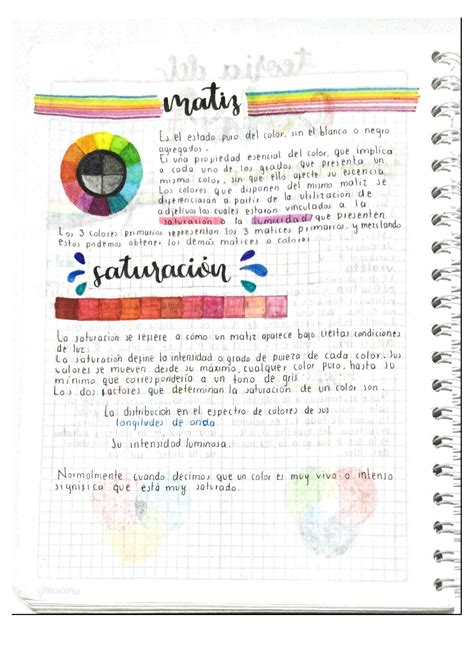 matiz
Es el estado puro del color, sin el blanco o negro
agregados.
Es una propiedad esencial del color, que implica
a cada uno de los grados que presenta un
mismo color, sin que ello afecte su eicencia
Los colores que disponen del mismo matiz se
diferenciaran a partir de la utilización de
adjetivos los cuales estarán vinculados a la
saturación o la luminosidad que presenten
Los 3 colores primarios representan los 3 matices primarios, y mezclando
estos podemos obtener los demás matices o colores
saturación
La saturación se refiere a cómo un matiz aparece bajo ciertas condiciones
de luz.
La saturación define la intensidad o grado de pureza de cada color. Sus
valores se mueven desde su máximo, cualquier color puro, hasta su
mínimo que correspondería a un tono de gris
Los dos factores que determinan la saturación de un color son
La distribución en el espectro de colores de sus
longitudes de onda
Su intensidad luminosa.
Normalmente, cuando decimos que un color es muy vivo o intenso
significa que está muy saturado.